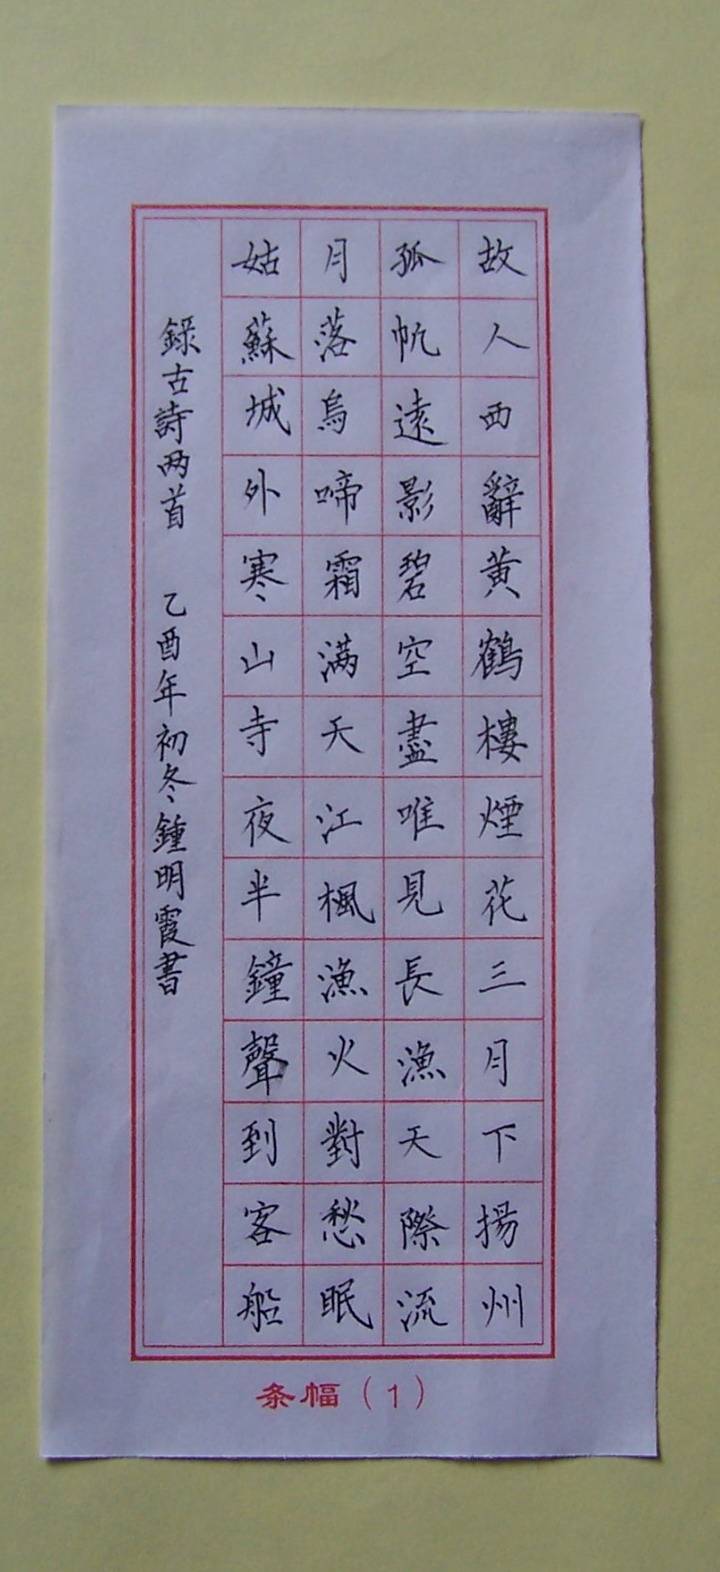 故人西辭黄鶴樓煙花三月下揚州
孤帆遠影碧空盡唯見長漁天際流
月落烏啼霜满天江楓漁火對愁眠
姑蘇城外寒山寺夜半鐘聲到客船
錄古詩两首 乙酉年初冬鍾明霞書
条幅(1)